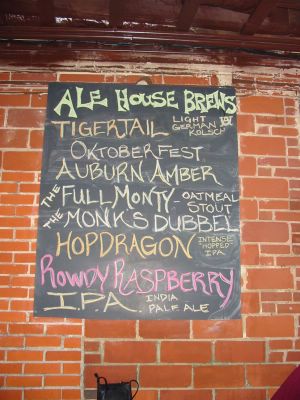 ALE HOUSE BREWS
TIGERTAIL LIGHT GERMAN KÖLSCH
OKTOBERFEST
AUBURN AMBER
THE FULL MONTY - OATMEAL STOUT
THE MONKS DUBBEL
HOPDRAGON INTENSE "HOPPED" IPA
ROWDY RASPBERRY
I.P.A. INDIA PALE ALE